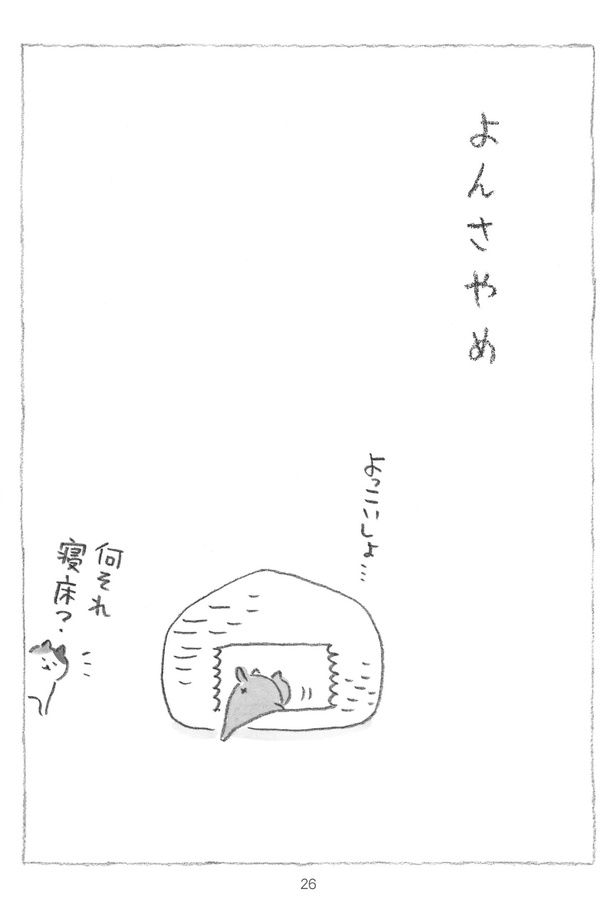 よんさやめ
よっこいしょ…
何それ
寝床？
26